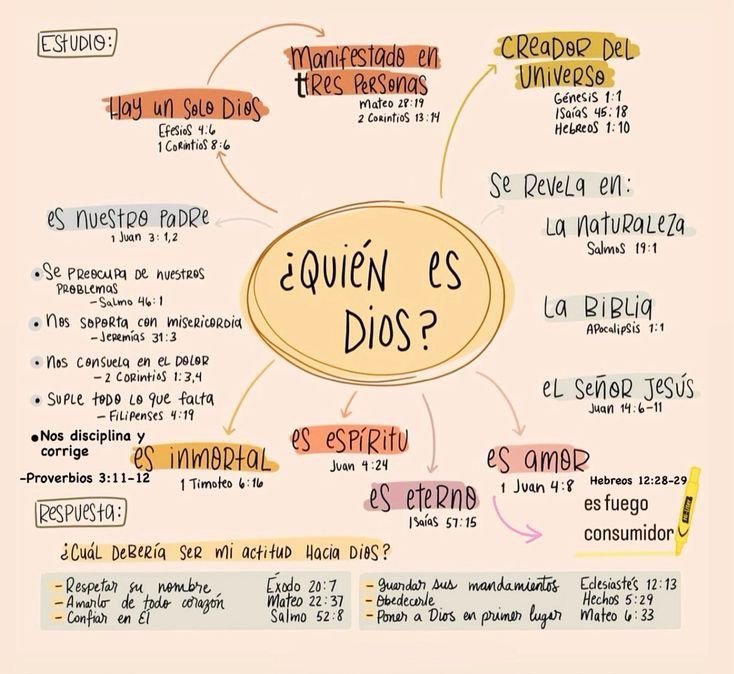 ESTUDIO:
Hay un solo Dios
Efesios 4:6
1 Corintios 8:6
Manifestado en
tres personas
Mateo 28:19
2 Corintios 13:14
Creador del
universo
Génesis 1:1
Isaías 45:18
Hebreos 1:10
Se revela en:
La naturaleza
Salmos 19:1
La Biblia
Apocalipsis 1:1
el Señor Jesús
Juan 14:6-11
es nuestro padre
1 Juan 3:1,2
• Se preocupa de nuestros
problemas
- Salmo 46:1
• Nos soporta con misericordia
- Jeremías 31:3
• Nos consuela en el dolor
- 2 Corintios 1:3,4
• Suple todo lo que falta
- Filipenses 4:19
• Nos disciplina y
corrige
-Proverbios 3:11-12
¿Quién es
Dios?
es inmortal
1 Timoteo 6:16
es espíritu
Juan 4:24
es eterno
Isaías 57:15
es amor
1 Juan 4:8
Hebreos 12:28-29
es fuego
consumidor
Respuesta:
¿Cuál debería ser mi actitud hacia Dios?
- Respetar su nombre Éxodo 20:7
- Amarlo de todo corazón Mateo 22:37
- Confiar en Él Salmo 52:8
- Guardar sus mandamientos Eclesiastés 12:13
- Obedecerle Hechos 5:29
- Poner a Dios en primer lugar Mateo 6:33